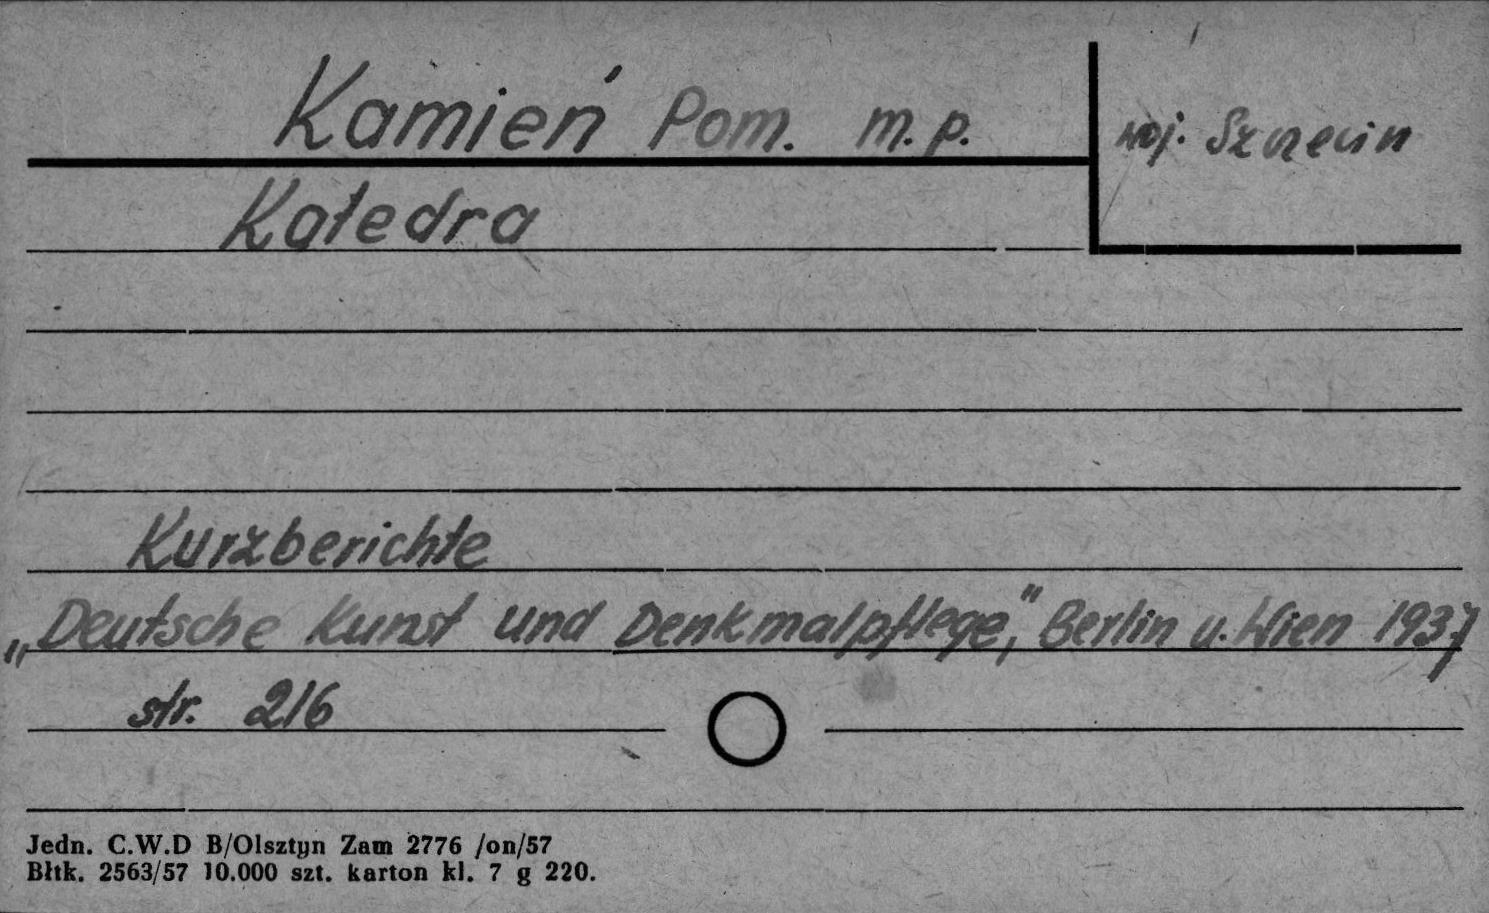 Kamień Pom. m.p.
woj. Szczecin
Katedra
Kurzberichte
„Deutsche Kunst und Denkmalpflege," Berlin u. Wien 1937
str. 216
Jedn. C.W.D B/Olsztyn Zam 2776 /on/57
Błtk. 2563/57 10.000 szt. karton kl. 7 g 220.